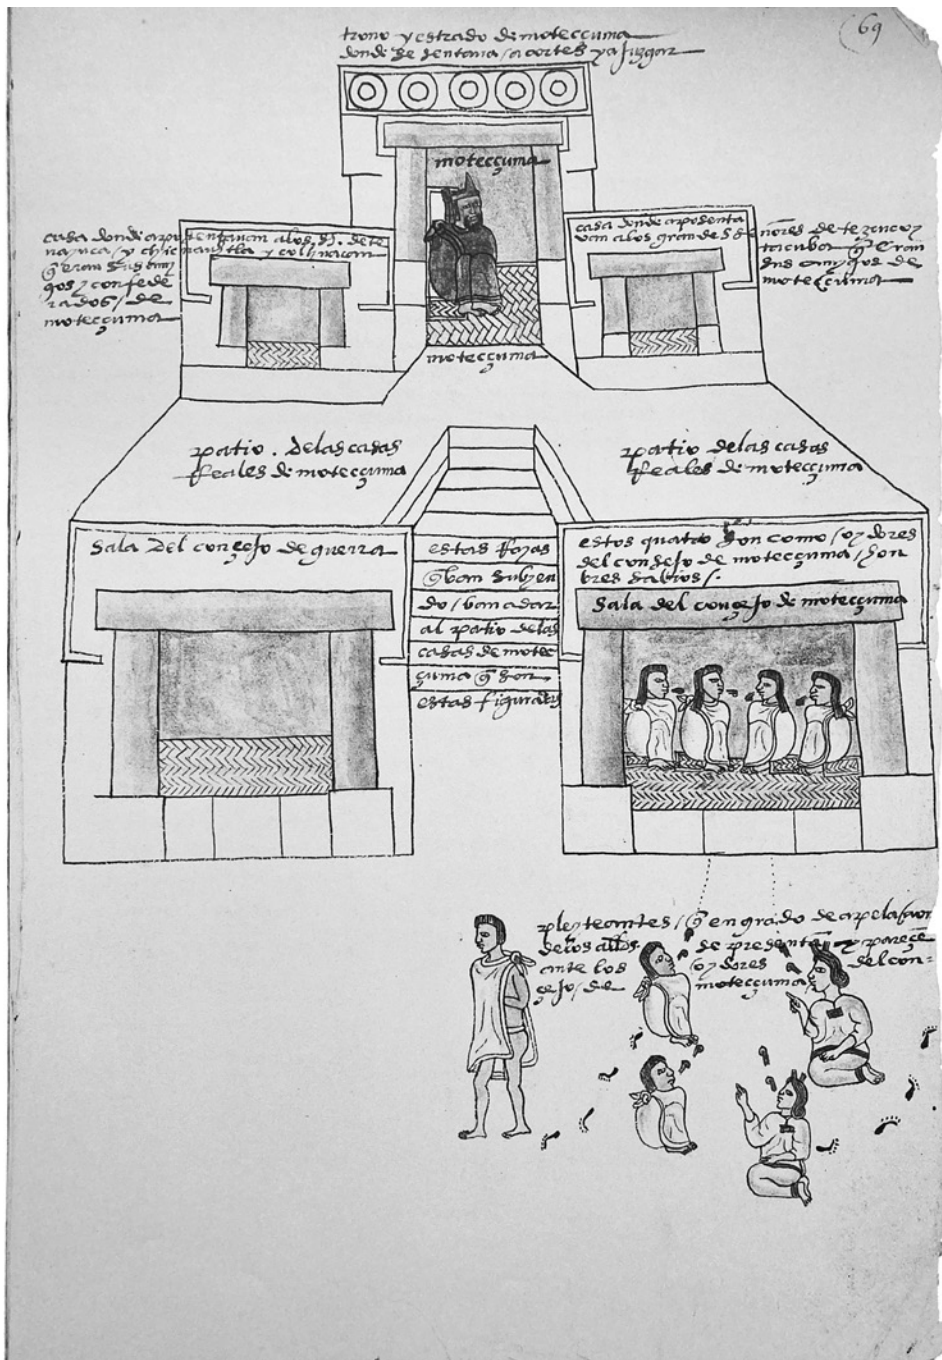 69
trono y estrado de motecçuma
donde se sentava / a cortes y a juzgar
motecçuma
casa donde aposentavan a los SS. de te
nayuca / y chicnauhtla y colhuacan
q̄ eran sus amy
gos / y confede
rados / de
motecçuma
casa donde aposenta
van a los grandes señores de tezcuco y
tacuba q̄ eran
sus amygos de
motecçuma
motecçuma
patio . de las casas
Reales de motecçuma
patio de las casas
Reales de motecçuma
sala del conçejo de guerra
estas Rayas
q̄ van subyen
do / van a dar
al patio de las
casas de motec
çuma q̄ son
estas figuradas
estos quatro son como / oydores
del consejo de motecçuma / hon
bres sabios / .
sala del conçejo de motecçuma
pleyteantes / q̄ en grado de apelaçion
de presentā y pareçē
ante los oydores del con=
çejo / de motecçuma